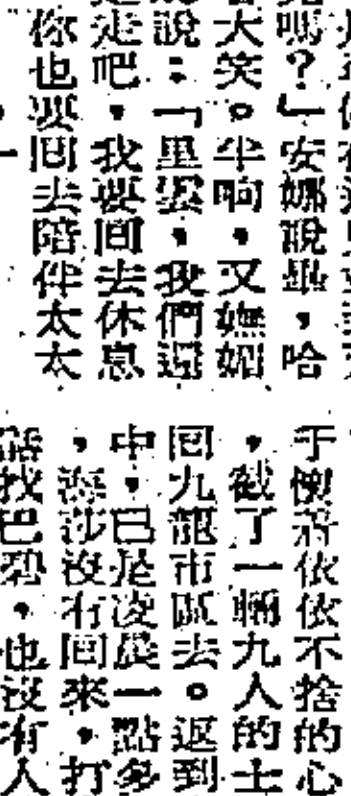 嗎？」安娜說畢，哈
大笑。半晌，又嫵媚
說：「里雲，我們還
走吧，我要回去休息
你也要回去陪伴太太
于懷着依依不捨的心
，截了一輛九人的士
回九龍市區去。返到
中，已是凌晨一點多
，海莎沒有回來，打
話找巴碧，也沒有人